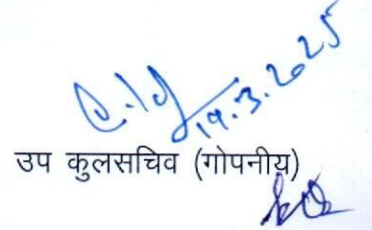 19.3.2025
उप कुलसचिव (गोपनीय)